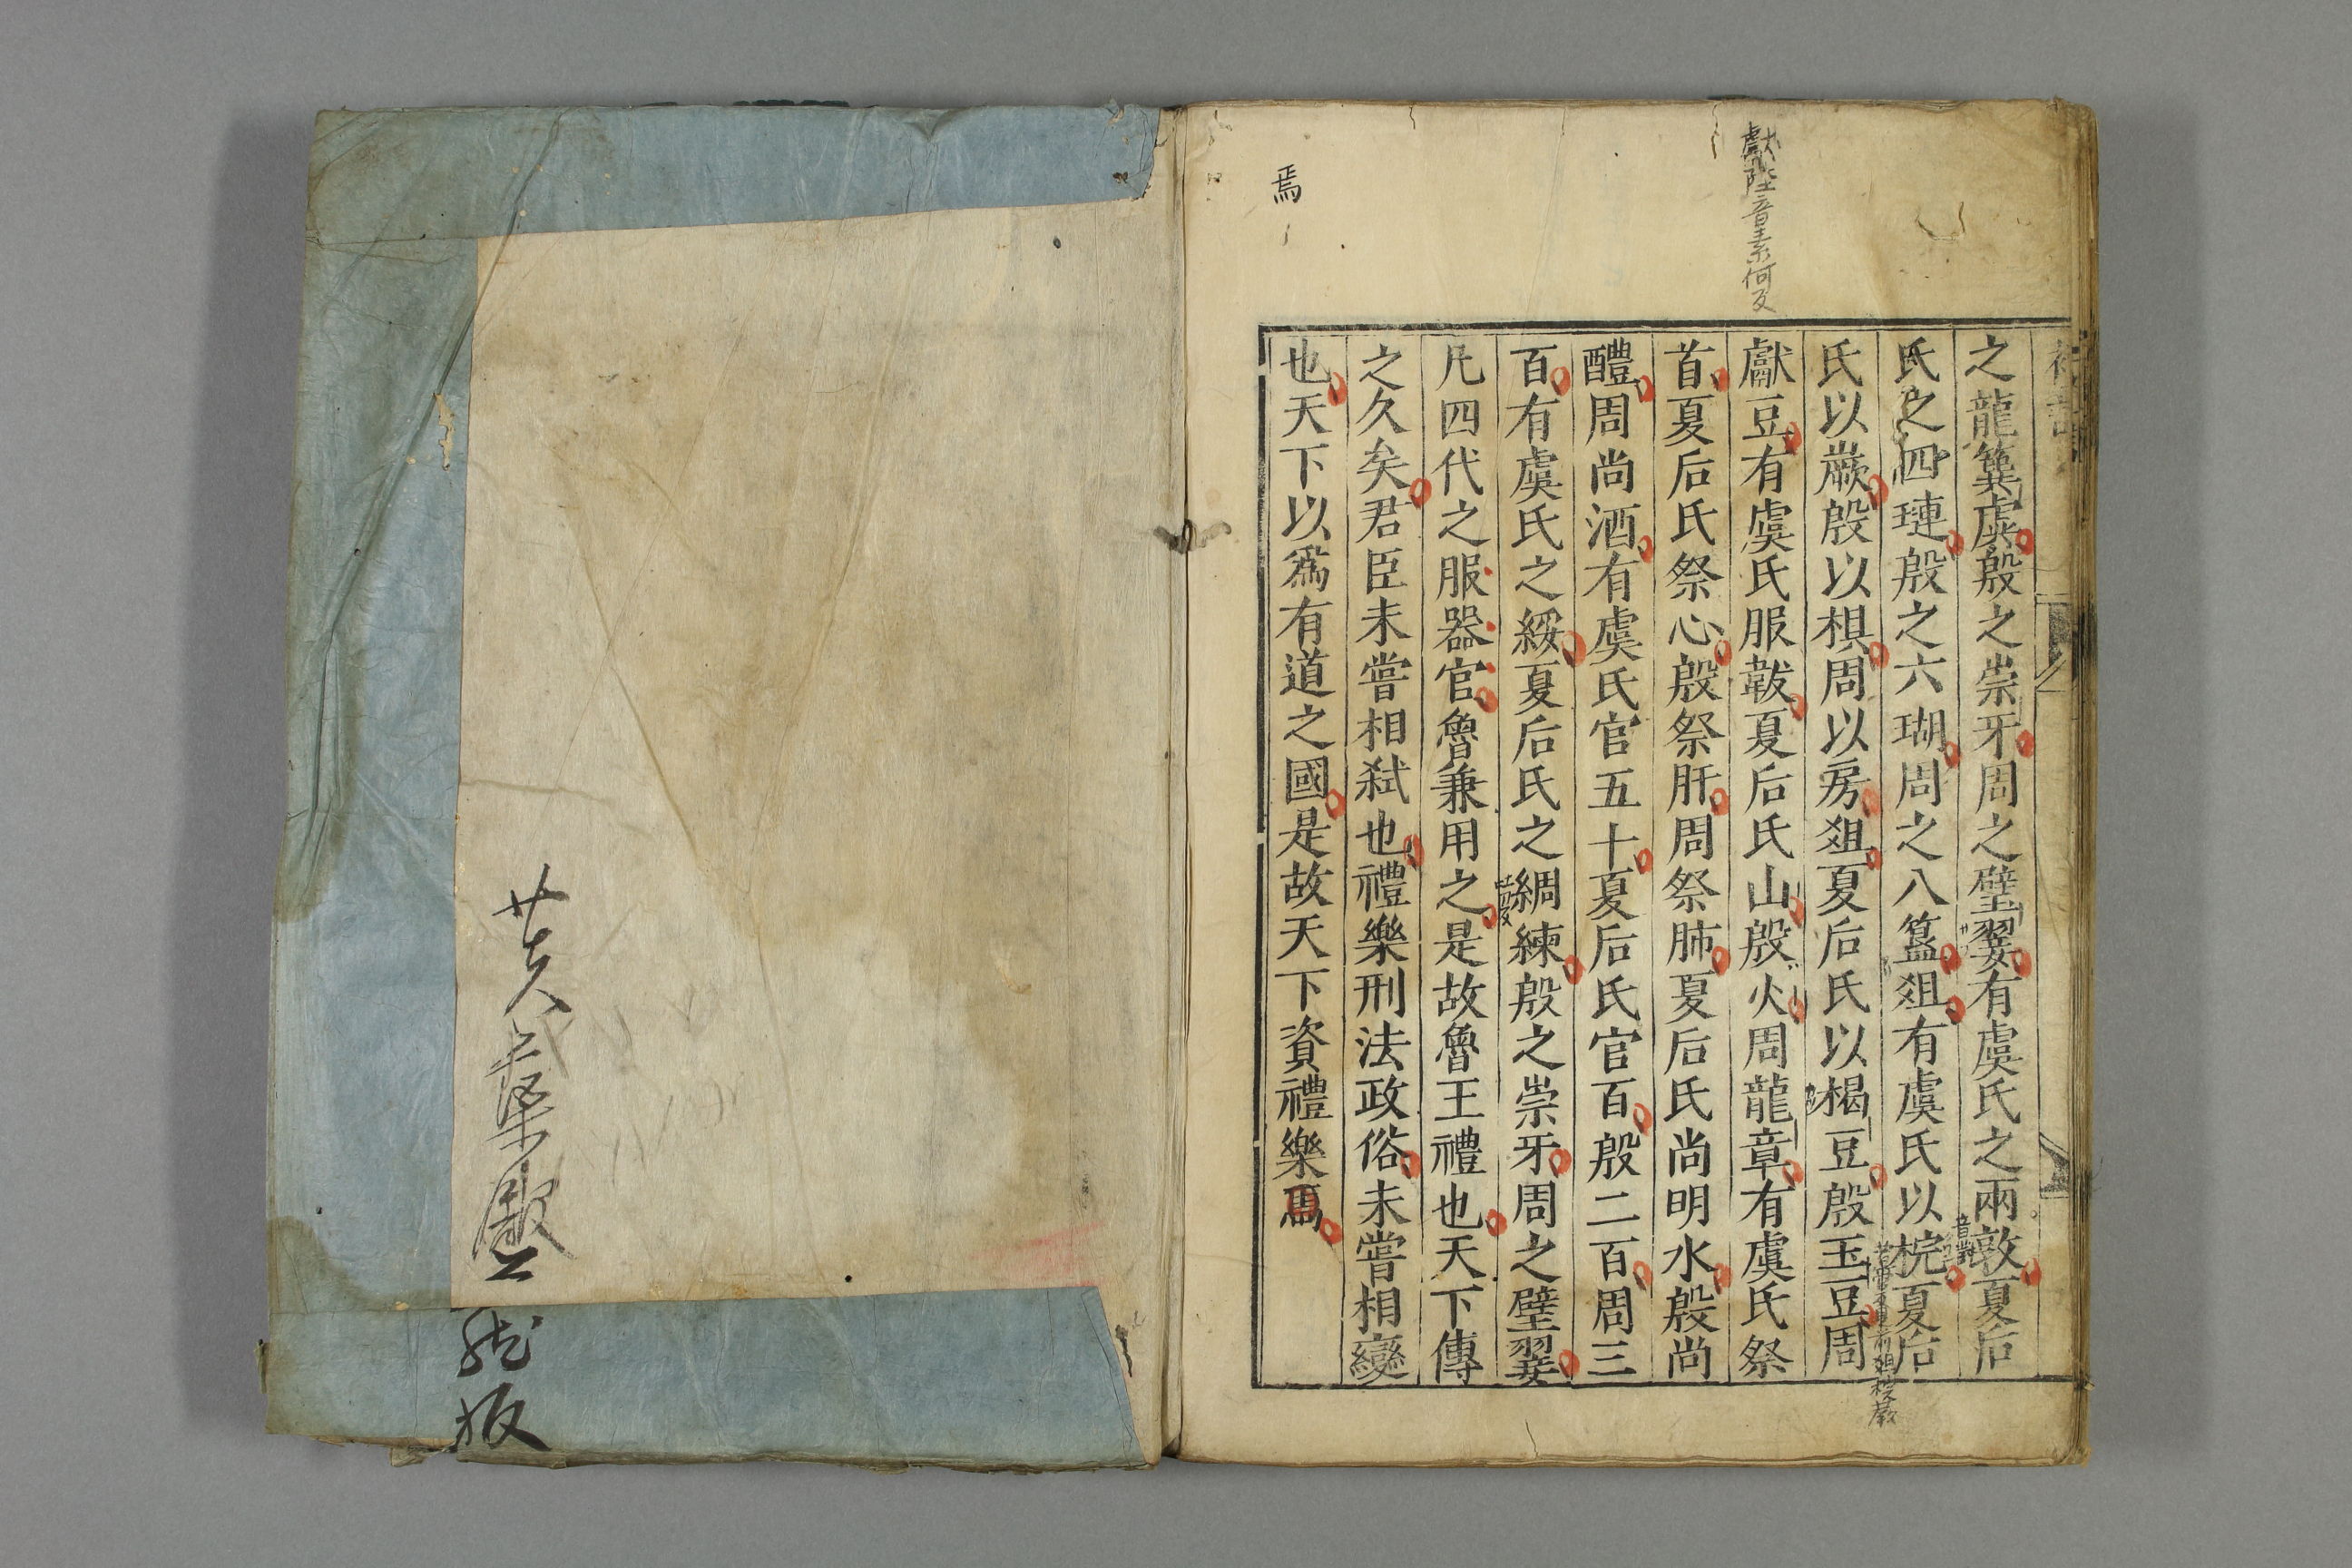 之龍簨虡殷之崇牙周之璧翣有虞氏之兩敦夏后
氏之四璉殷之六瑚周之八簋爼有虞氏以梡夏后
氏以嶡殷以椇周以房爼夏后氏以楬豆殷玉豆周
獻豆有虞氏服韍夏后氏山殷火周龍章有虞氏祭
首夏后氏祭心殷祭肝周祭肺夏后氏尚明水殷尚
醴周尚酒有虞氏官五十夏后氏官百殷二百周三
百有虞氏之綏夏后氏之綢練殷之崇牙周之璧翣
凡四代之服器官魯兼用之是故魯王禮也天下傳
之久矣君臣未嘗相弑也禮樂刑法政俗未嘗相變
也天下以爲有道之國是故天下資禮樂焉
獻陸音素何反
焉
音對